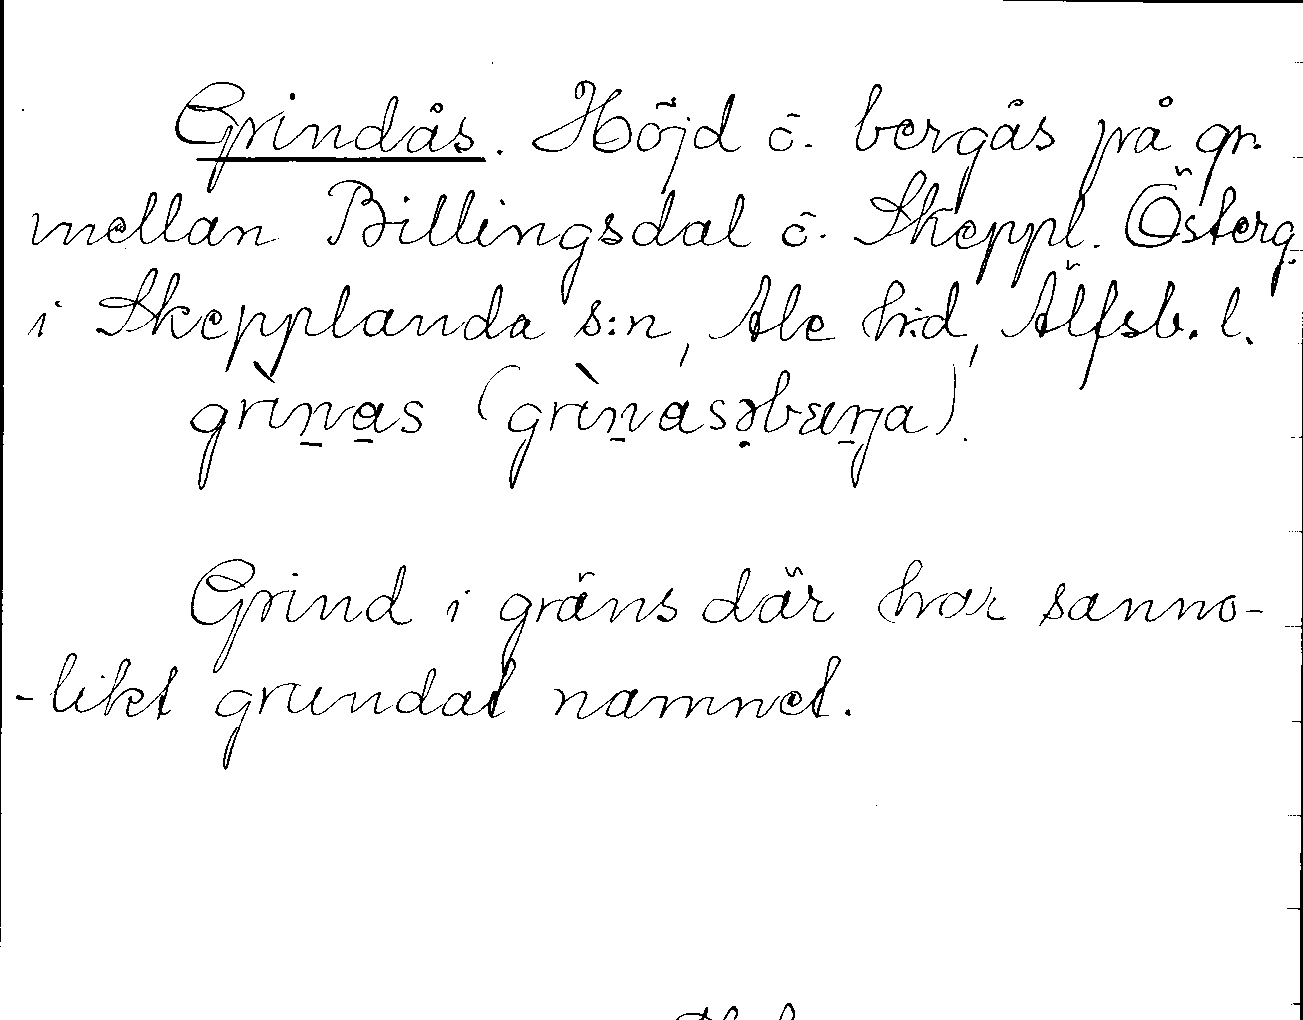 Grindås. Höjd o. bergås på gr.
mellan Billingsdal o. Skeppl. Österg.
i Skepplanda s:n, Ale h:d, Älfsb. l.
grìn̠a̠s (grìn̠asə̣bæn̠a).
Grind i gräns där har sanno-
-likt grundat namnet.